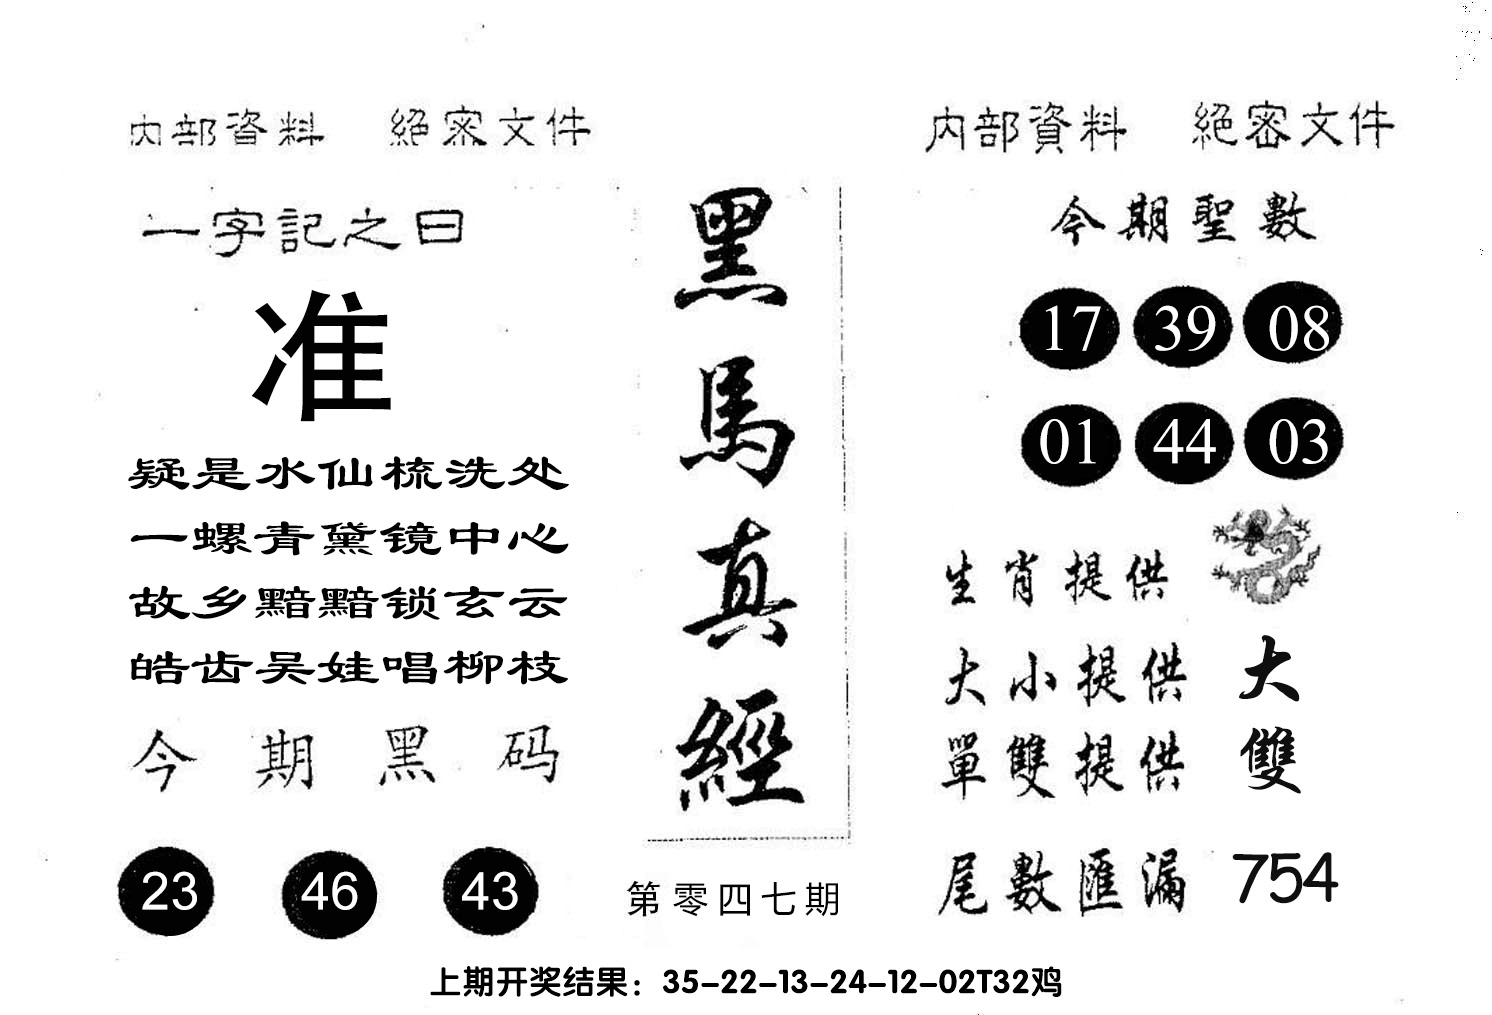 内部資料 絕密文件
一字記之曰
准
疑是水仙梳洗处
一螺青黛镜中心
故乡黯黯锁玄云
皓齿吴娃唱柳枝
今期黑码
23 46 43
黑馬真經
第零四七期
内部資料 絕密文件
今期聖數
17 39 08
01 44 03
生肖提供
大小提供 大
單雙提供 雙
尾數匯漏 754
上期开奖结果：35-22-13-24-12-02T32鸡